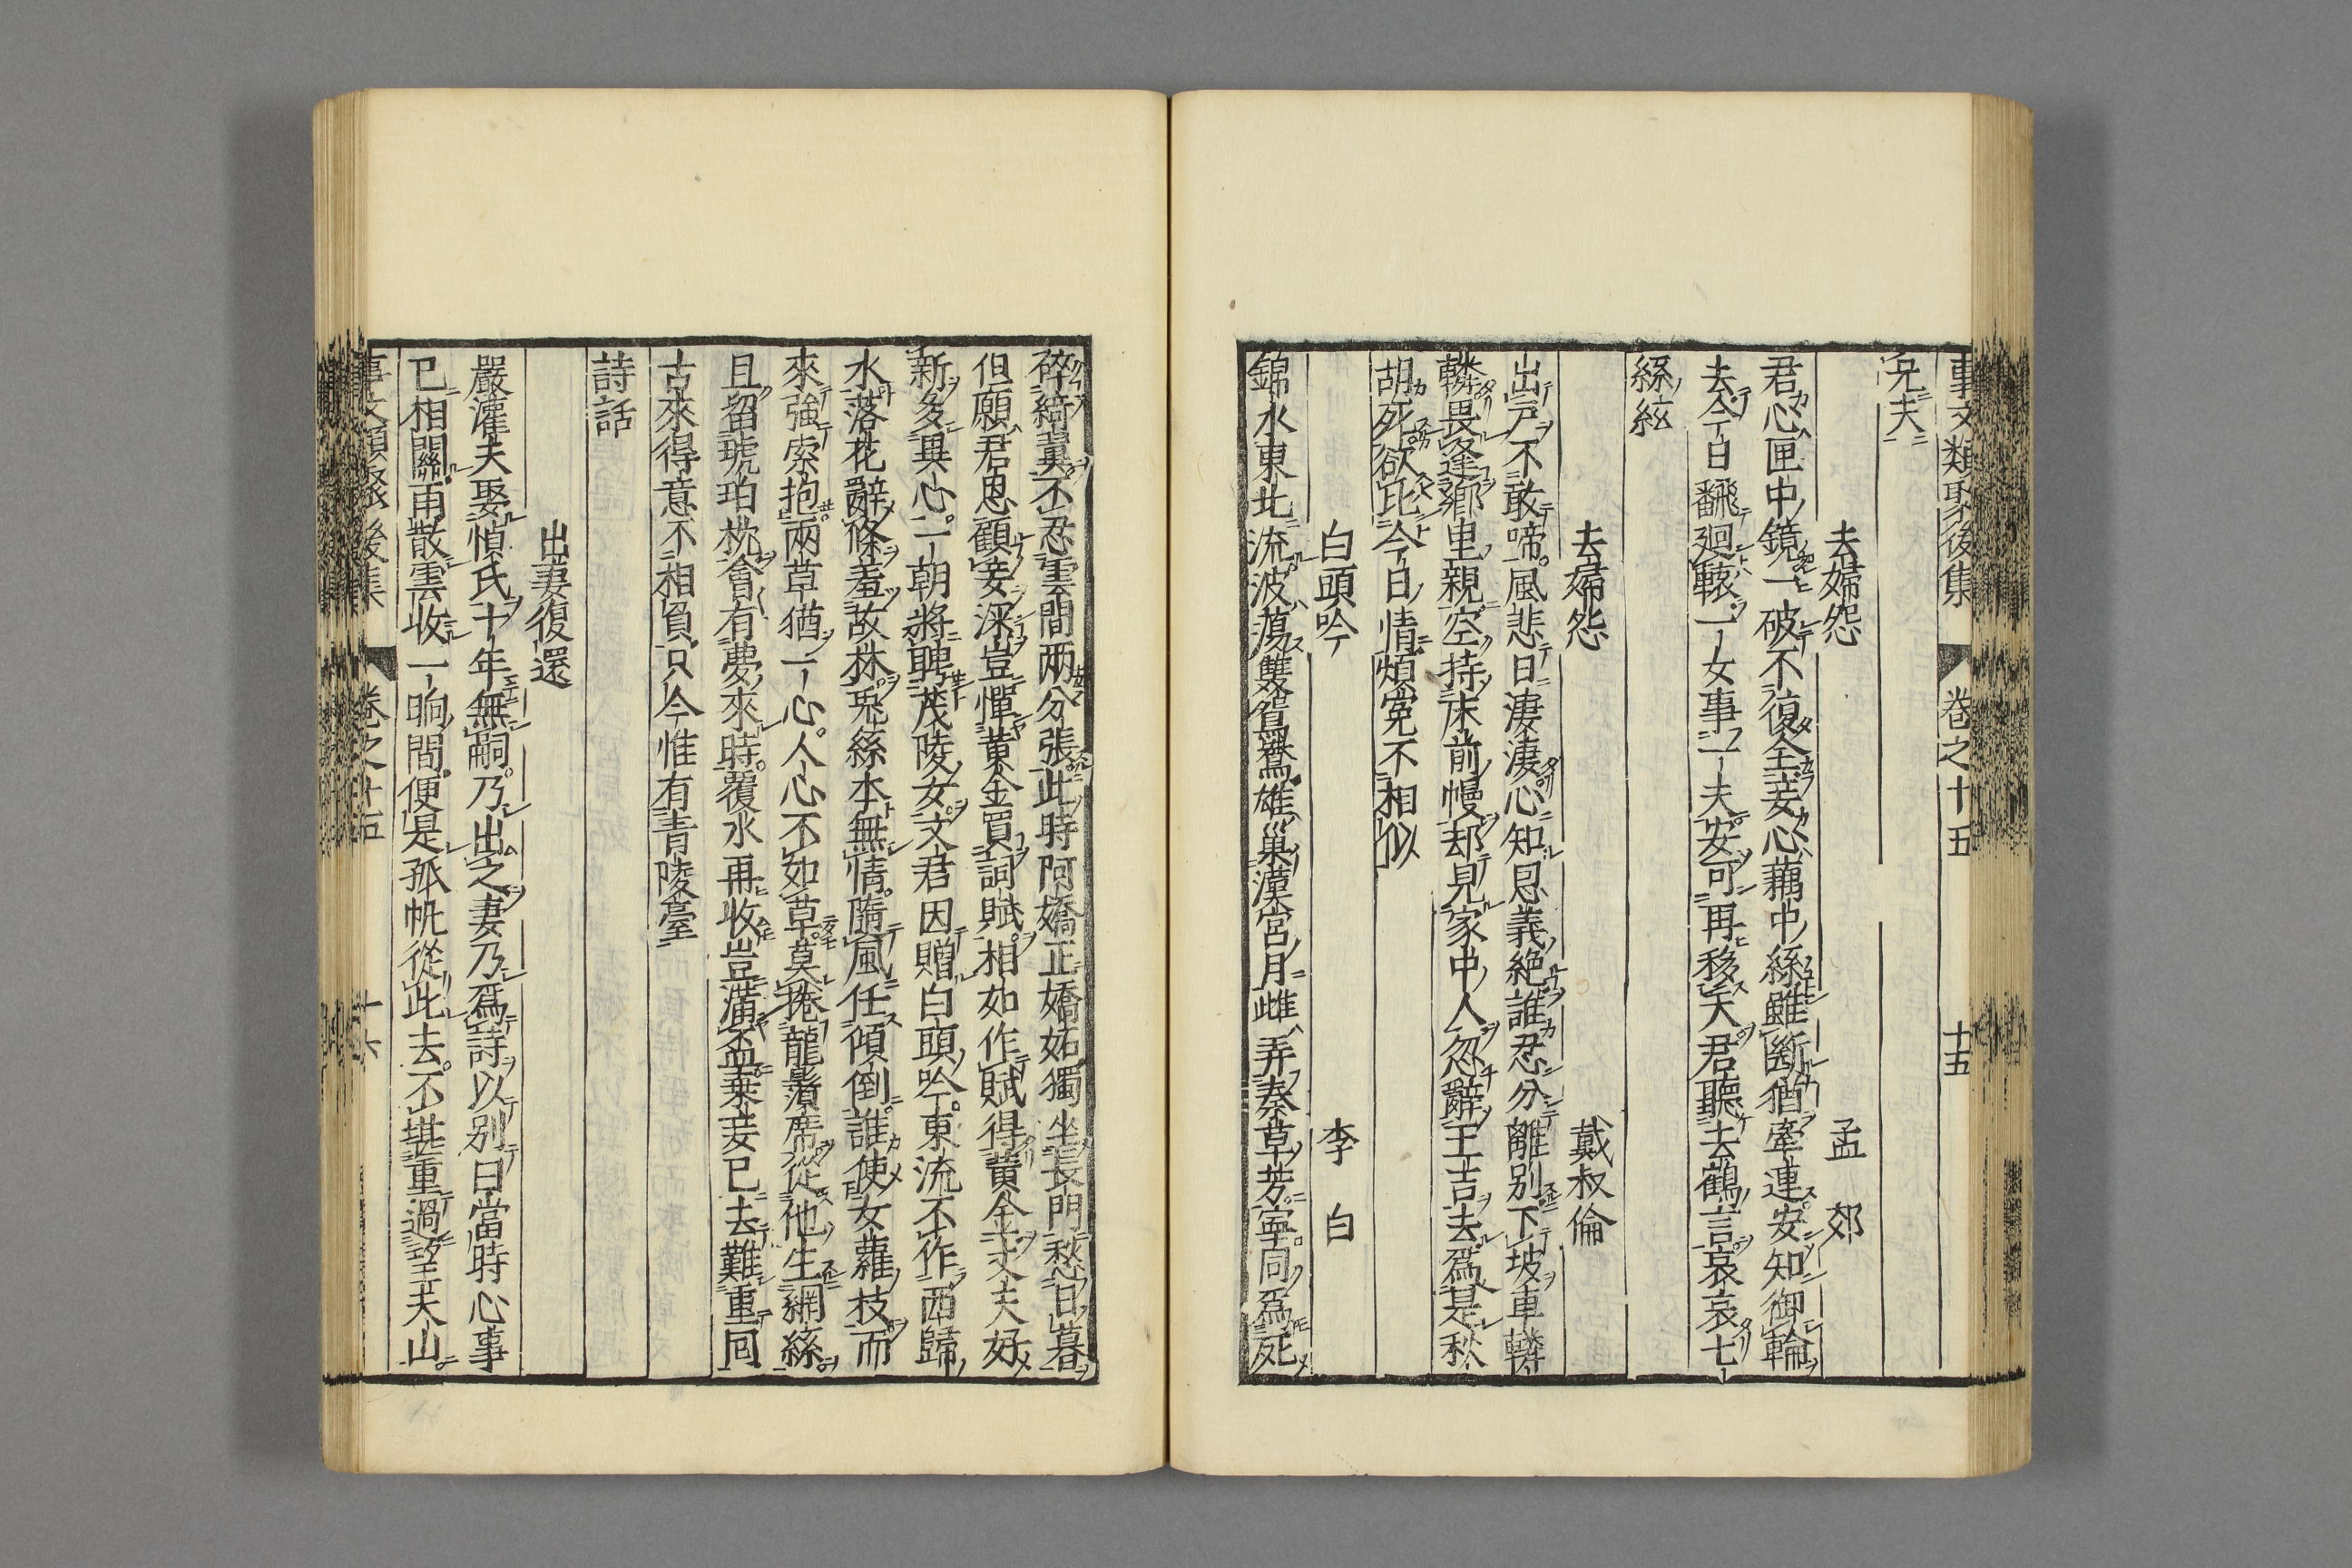 事文類聚後集 卷之十五 十五
兄夫
去婦怨 孟郊
君心匣中鏡一破不復全妾心藕中絲雖斷猶牽連安知御輪
去今日翻廻轅一女事一夫安可再移天君聽去鶴言哀哀七
絲絃
去婦怨 戴叔倫
出戸不敢啼風悲日凄凄心知恩義絶誰忍分離別下坡車轔
轔畏逢鄉里親空持床前幔却見家中人忽辭王吉去爲是秋
胡死欲比今日情煩寃不相似
白頭吟 李白
錦水東北流波蕩雙鴛鴦雄巢漢宮月雌弄秦草芳寧同爲死
碎綺翼不忍雲間兩分張此時阿嬌正嬌妬獨坐長門愁日暮
但願君恩顧妾深豈憚黄金買詞賦相如作賦得黄金丈夫好
新多異心一朝將聘茂陵女文君因贈白頭吟東流不作西歸
水落花辭條羞故林兎絲本無情隨風任傾倒誰使女蘿枝而
來強索抱兩草猶一心人心不如草莫捲龍鬚席從他生網絲
且留琥珀枕會有夢來時覆水再收豈滿盃棄妾已去難重囘
古來得意不相負只今惟有青陵臺
詩話
出妻復還
嚴灌夫娶慎氏十年無嗣乃出之妻乃爲詩以别曰當時心事
已相關雨散雲收一晌間便是孤帆從此去不堪重過望夫山
事文類聚後集 卷之十五 十六